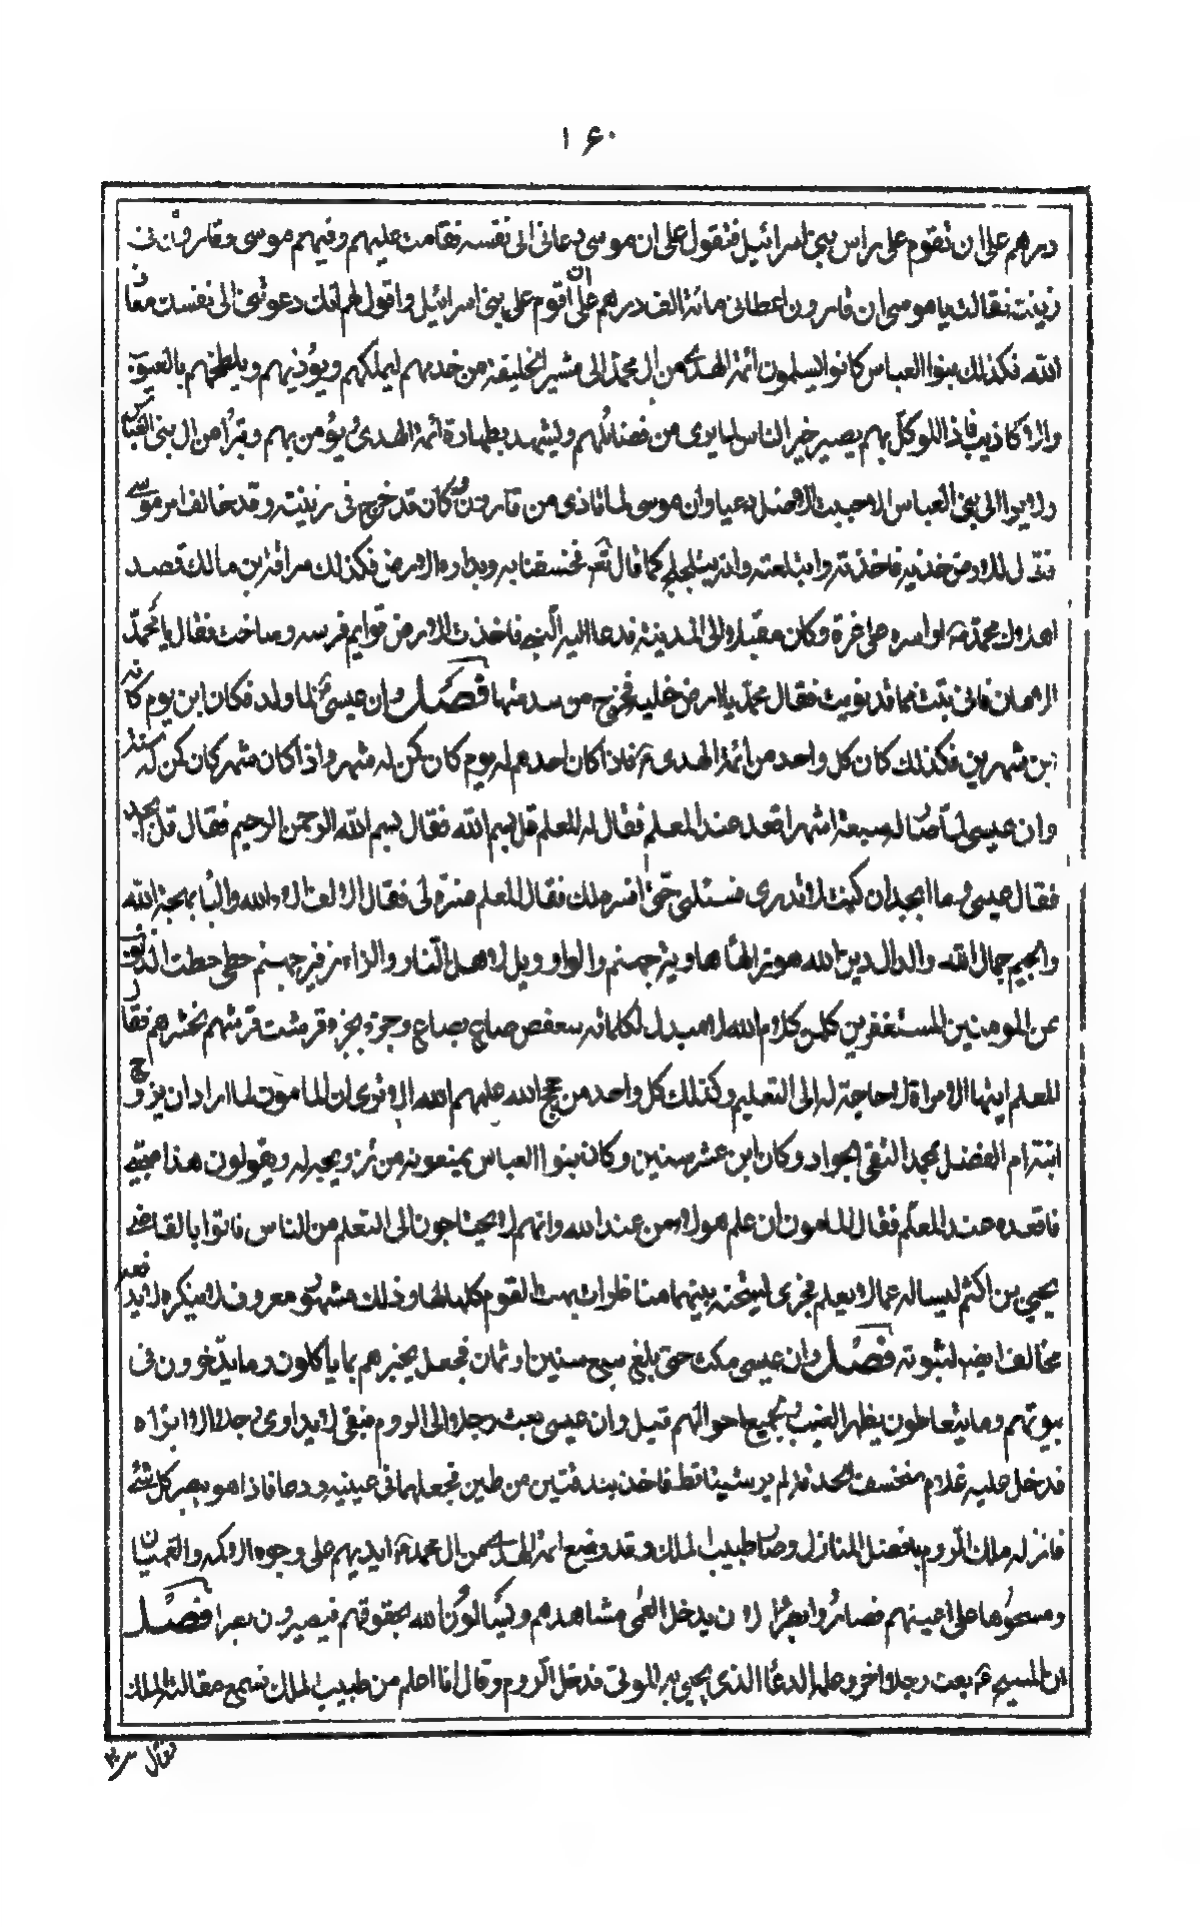 ١۶٠
درهم على ان تقوم على راس بني اسرائيل فتقول على ان موسى دعاني الى نفسه فقامت عليهم وفيهم موسى وقارون في
زينته فقالت يا موسى ان قارون اعطاني مائة الف درهم على ان اقوم على بني اسرائيل واقول لهم انك دعوتني الى نفسك معاذ
الله فكذلك بنوا العباس كانوا يسلمون ائمة الهدى من ال محمد الى الخليفة من خدمهم ليملكهم ويؤذيهم ويلطخهم بالعيوب
والاكاذيب فاذا الموكل بهم يصير خير الناس لما يرى من فضائلهم وليشهد بطهارة ائمة الهدى يؤمن بهم وتبرأ من ال بني العباس
ولا يروا الى بني العباس وان موسى لما تاذى من قارون وكان قد خرج في زينته وقد خالف امر موسى
خذيه فاخذته وابتلعته كما قال تعالى فخسفنا به وبداره الارض فكذلك سراقة بن مالك قصد
محمد وكان مقبلا الى المدينة فدعا عليه فاخذت الارض قوايم فرسه وصاحت فقال يا محمد
الامان فاني تبت مما قد نويت فقال محمد يا ارض خليه فخرج من سدعتها فصل وان عيسى لما ولد فكان ابن يوم كانه
ابن شهرين فكذلك كان كل واحد من ائمة الهدى فاذا كان احدهم له يوم كان كمن له شهر واذا كان شهر كان كمن له سنة
وان عيسى لما صار له سبعة اشهر اقعد عند المعلم فقال له المعلم قل بسم الله فقال بسم الله الرحمن الرحيم فقال قل ابجد
فقال عيسى وما ابجد ان كنت لا تدري فسئلني حتى افسر لك فقال المعلم فسره لي فقال الالف الاء الله والباء بهجة الله
والجيم جمال الله والدال دين الله هوز الهاء هاوية جهنم والواو ويل لاهل النار والزاء زفير جهنم حطي حطت الذنوب
عن المومنين المستغفرين كلمن كلام الله لا مبدل لكلماته سعفص صاع بصاع وجزء بجزء قرشت قرشهم بحشرهم فقال
المعلم ايتها الامراة لا حاجة له الى التعليم وكذلك كل واحد من حجج الله عليهم الله الا ترى ان المامون لما اراد ان يزوج
ابنته ام الفضل بمحمد التقي الجواد وكان ابن عشر سنين وكان بنوا العباس يمنعونه من تزويجه له ويقولون هذا صبي
فاقعده عند المعلم فقال المامون ان علم هولاء من عند الله وانهم لا يحتاجون الى التعلم من الناس فاتوا بالقاضي
يحيى بن اكثم ليساله عما لا يعلم فجرى بينهما مناظرات بهت القوم كلها وذلك مشهور معروف لا ينكره لا يدفعه
مخالف لثبوته فصل وان عيسى مكث حتى بلغ سبع سنين او ثمان فجعل يخبرهم بما ياكلون وما يدخرون في
بيوتهم وما يتعاطون يظهر الغيب بجميع احوالهم قيل وان عيسى بعث رجلا الى الروم فبقي لا يداوي رجلا الا ابراه
فدخل عليه غلام منخسف الحدقة لم ير شيئا قط فاخذ بندقتين من طين فجعلهما في عينيه ودعا فاذا هو بصر كل شئ
فانزله ملك الروم بافضل المنازل وصار طبيب الملك وقد وضع ائمة الهدى من ال محمد ايديهم على وجوه الاكمه والعميان
ومسحوها على اعينهم فصاروا بصرا لان يدخل العمى مشاهدهم ويسالون الله بحقوقهم فيصيرون بصرا فصل
ان المسيح بعث رجلا اخر وعلمه الدعاء الذي يحيى به الموتى فدخل الروم وقال انا اعلم من طبيب الملك فسمع مقالته الملك
فقال